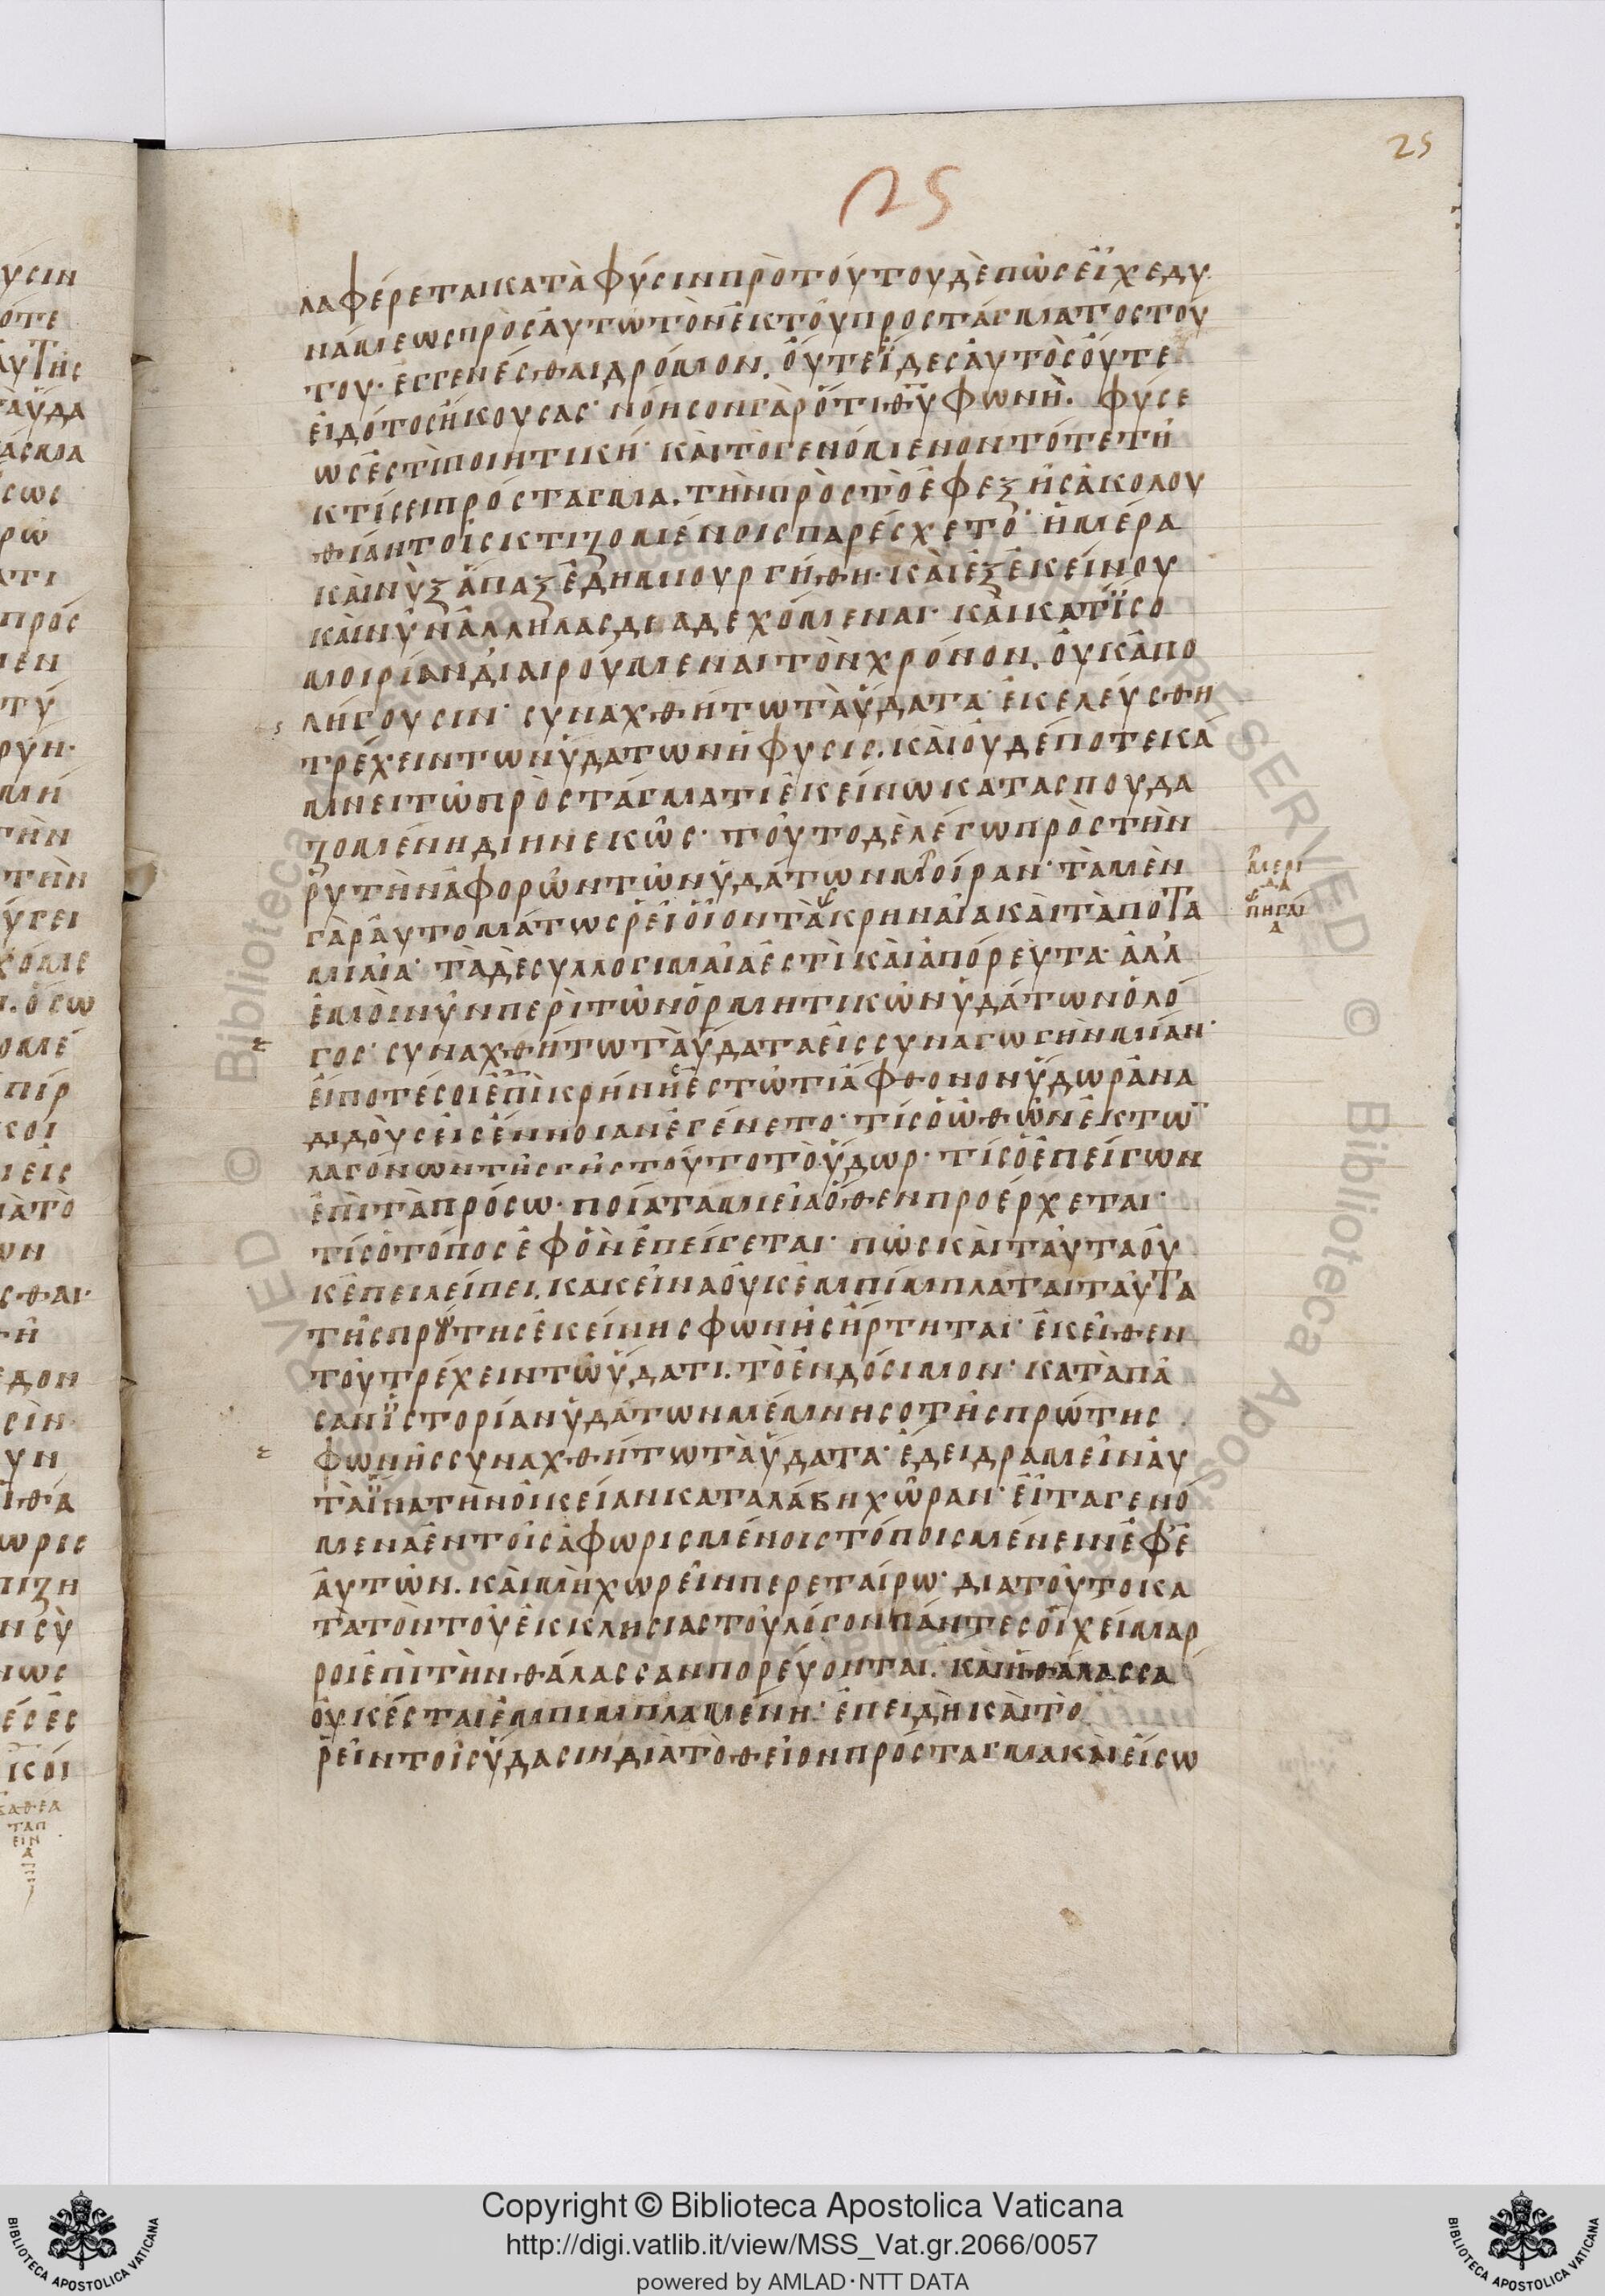 25
25
λα φέρεται κατὰ φύσιν πρὸ τούτου δὲ πῶς εἶχε δυ
νάμεως πρὸς αὐτῶ τὸν ἐκ τοῦ προστάγματος τού
του· ἐγγενέσθαι δρόμον. οὔτε ἴδες αὐτὸς οὔτε
εἰδότος ἤκουσας· νόησον γὰρ ὅτι θῦ φωνὴ. φύσε
ως ἐστὶ ποιητική· καὶ τὸ γενόμενον τότε τῆ
κτίσει πρόσταγμα. τὴν πρὸς τὸ ἐφεξῆς ἀκολου
θίαν τοῖς κτιζομένοις παρέσχετο· ἡμέρα
καὶ νὺξ ἅπαξ ἐδημιουργήθη· καὶ ἐξ ἐκείνου
καὶ νῦν ἀλλήλας διαδεχόμεναι· καὶ κατ ἰσο
μοιρίαν διαιρούμεναι τὸν χρόνον. οὐκ ἀπο
λήγουσιν· συναχθήτω τὰ ὕδατα· ἐκελεύσθη
τρέχειν τῶν ὑδάτων ἡ φύσις. καὶ οὐδέποτε κά
μνει τῶ προστάγματι ἐκείνω κατασπουδα
ζομένη διηνεκῶς· τοῦτο δὲ λέγω πρὸς τὴν
ῥυτὴν ἀφορῶν τῶν ὑδάτων μοίραν· τὰ μὲν
γὰρ αὐτομάτως ῥεῖ οἷον τὰ κρηναῖα καὶ τὰ ποτα
μιαῖα· τὰ δὲ συλλογιμαῖα ἐστὶ καὶ ἀπόρευτα· ἀλλ
ἐμοὶ νῦν περὶ τῶν ὁρμητικῶν ὑδάτων ὁ λό
γος· συναχθήτω τὰ ὕδατα εἰς συναγωγὴν μίαν·
εἴ ποτέ σοι ἐπὶ κρήνης ἑστῶτι ἄφθονον ὕδωρ ἀνα
διδούσης εἰς ἔννοιαν ἐγένετο· τίς ὁ ὠθῶν ἐκ τῶ
λαγόνων τῆς γῆς τοῦτο τὸ ὕδωρ· τίς ὁ ἐπείγων
ἐπὶ τὰ πρόσω· ποῖα ταμιεῖα ὅθεν προέρχεται·
τίς ὁ τόπος ἐφ ὃν ἐπείγεται· πῶς καὶ ταῦτα οὐ
κ ἐπειλείπει. κακεῖνα οὐκ ἐμπίμπλαται ταῦτα
τῆς πρώτης ἐκείνης φωνῆς ἤρτηται· ἐκεῖθεν
τοῦ τρέχειν τῶ ὕδατι. τὸ ἐνδόσιμον· κατὰ πᾶ
σαν ἱστορίαν ὑδάτων μέμνησο τῆς πρώτης
φωνῆς συναχθήτω τὰ ὕδατα· ἔδει δραμεῖν αὐ
τὰ ἵνα τὴν οἰκείαν καταλάβη χώραν· εἶτα γενό
μενα ἐν τοῖς ἀφωρισμένοις τόποις μένειν ἐφ ἑ
αυτῶν. καὶ μὴ χωρεῖν περεταίρω· διατοῦτο κα
τὰ τὸν τοῦ ἐκκλησιαστοῦ λόγον πάντες οἱ χείμαρ
ροι ἐπὶ τὴν θάλασσαν πορεύονται. καὶ ἡ θάλασσα
οὐκ ἔσται ἐμπιμπλαμένη· ἐπειδὴ καὶ τὸ
ῥεῖν τοῖς ὕδασιν διὰ τὸ θεῖον πρόσταγμα καὶ εἴσω
μερί
δα
πηγαῖ
α
Copyright © Biblioteca Apostolica Vaticana
http://digi.vatlib.it/view/MSS_Vat.gr.2066/0057
powered by AMLAD·NTT DATA